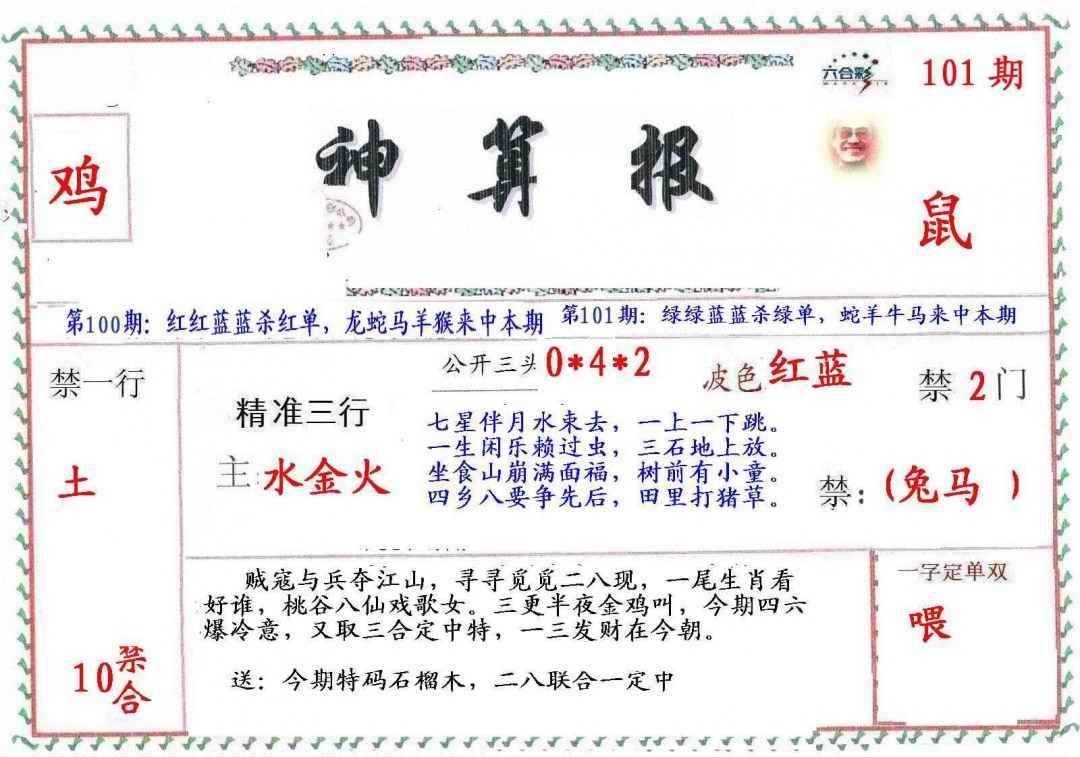 六合彩
101期
神算报
鸡
鼠
第100期：红红蓝蓝杀红单，龙蛇马羊猴来中本期
第101期：绿绿蓝蓝杀绿单，蛇羊牛马来中本期
禁一行
土
10禁合
精准三行
主:水金火
公开三头0*4*2
波色红蓝
七星伴月水束去，一上一下跳。
一生闲乐赖过虫，三石地上放。
坐食山崩满面福，树前有小童。
四乡八要争先后，田里打猪草。
禁2门
禁：(兔马 )
贼寇与兵夺江山，寻寻觅觅二八现，一尾生肖看
好谁，桃谷八仙戏歌女。三更半夜金鸡叫，今期四六
爆冷意，又取三合定中特，一三发财在今朝。
送：今期特码石榴木，二八联合一定中
一字定单双
喂